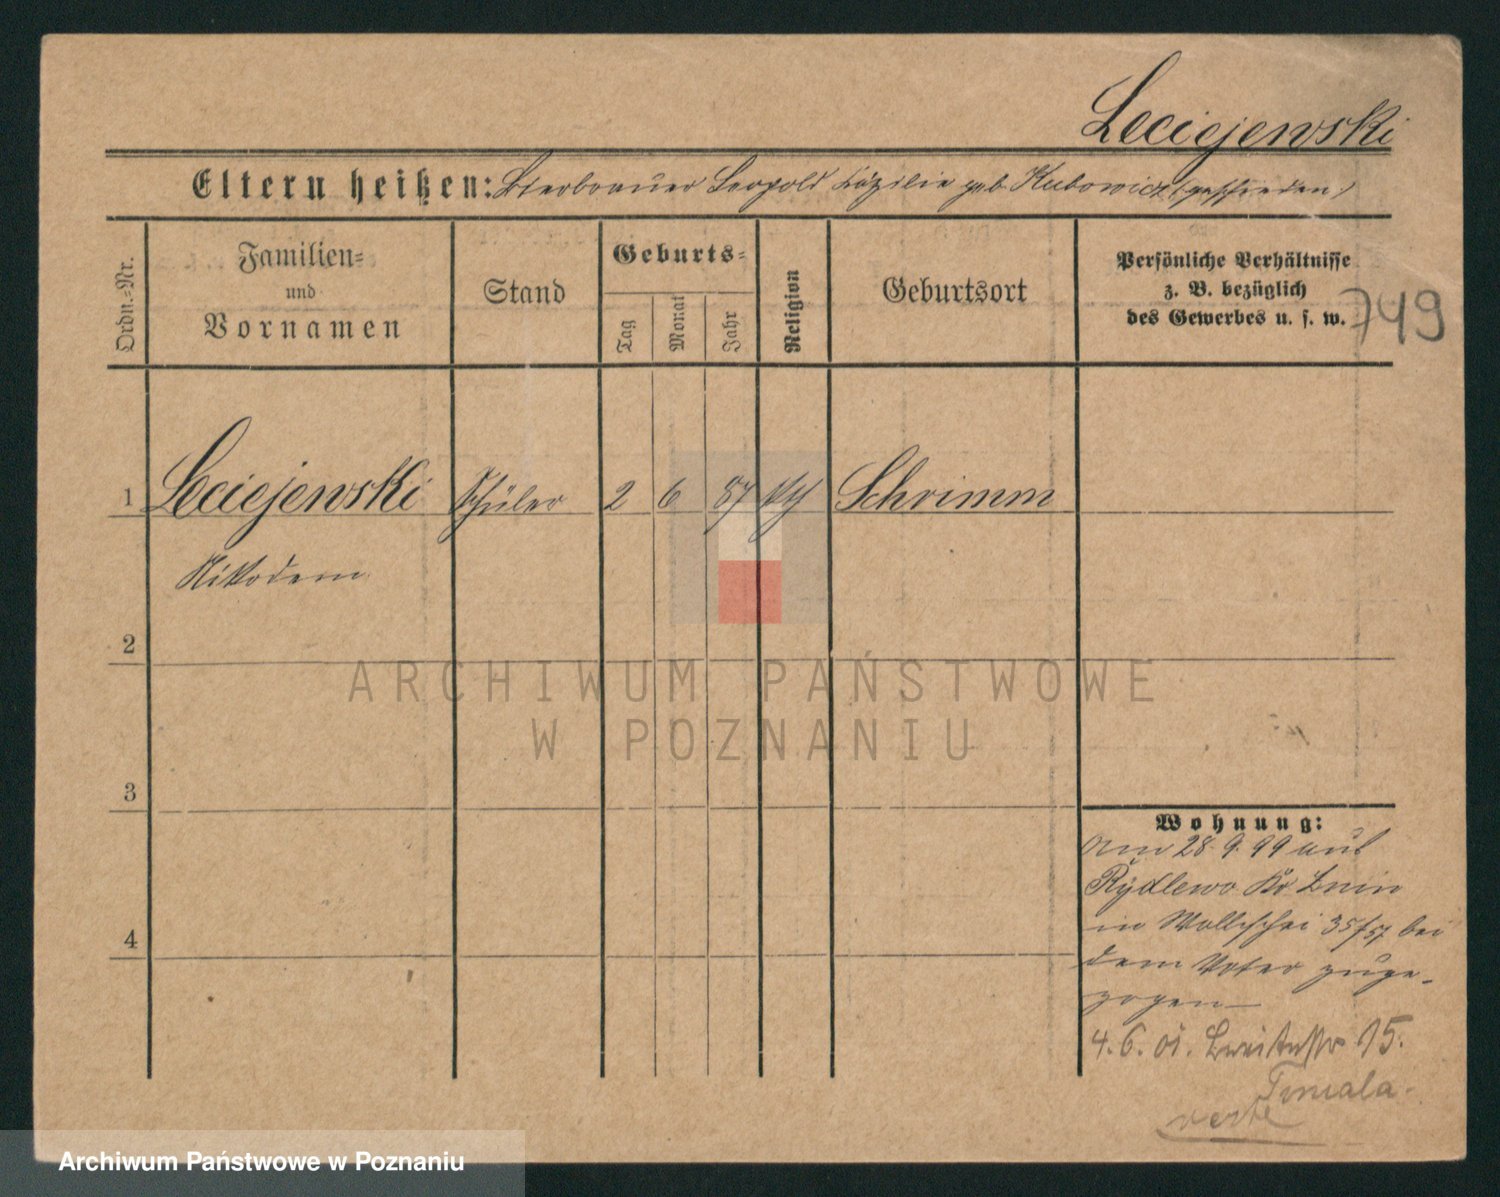 Leciejewski
Eltern heißen: Bierbrauer Leopold Cäzilie geb. Kubowicz (geschieden)
Ordn.-Nr.
Familien-
und
Vornamen
Stand
Geburts-
Tag
Monat
Jahr
Religion
Geburtsort
Persönliche Verhältnisse
z. B. bezüglich
des Gewerbes u. s. w.
749
1 Leciejewski Schüler 2 6 87 kth Schrimm
Nikodem
2
3
4
Wohnung:
Am 28. 9. 99 aus
Rydlewo Kr. Znin
in Wallischei 35/57 bei
dem Vater zuge-
zogen
4. 6. 01. 15.
verte
ARCHIWUM PAŃSTWOWE
W POZNANIU
Archiwum Państwowe w Poznaniu